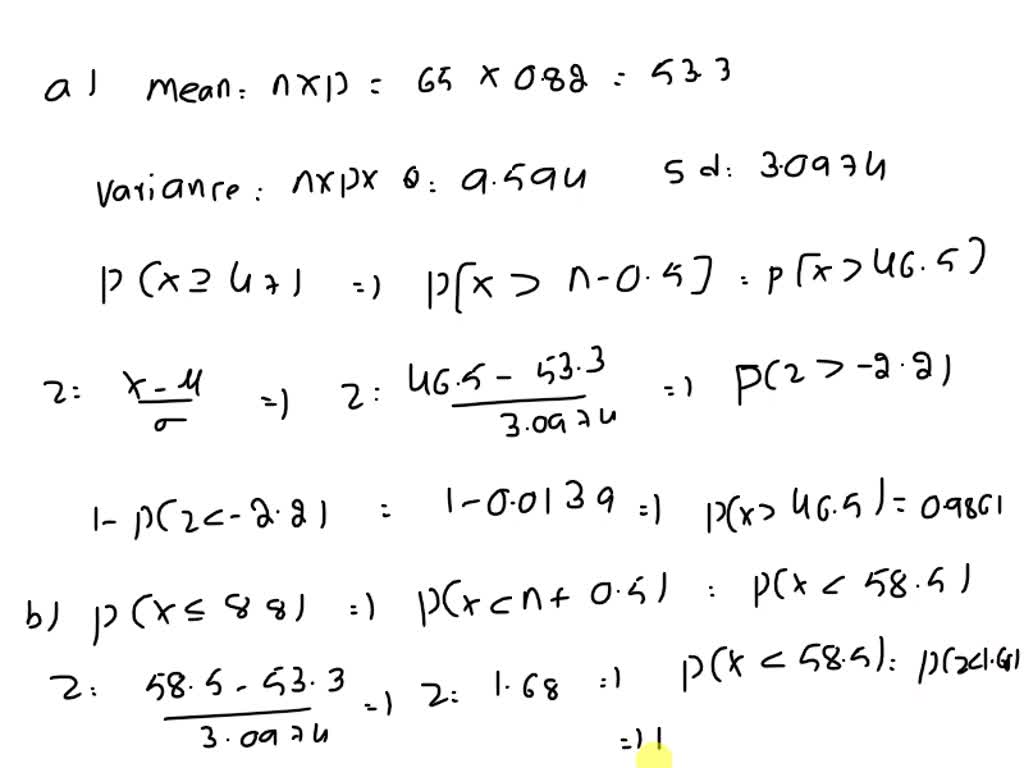 a) mean: nxp = 65 x 0.82 = 53.3
Variance: nxpx Q: 9.594 Sd: 3.0974
P(x ≥ 47) => P[x > n-0.5] = P[x > 46.5)
Z: x-μ/σ => Z: 46.5 - 53.3/3.0974 => P(Z > -2.2)
1- P(Z < -2.2) = 1-0.0139 => P(x > 46.5) = 0.9861
b) P(x ≤ 88) => P(x < n + 0.5) : P(x < 58.5)
Z: 58.5 - 53.3/3.0974 => Z: 1.68 => P(x < 58.5): P(Z<1.68)
=> 1